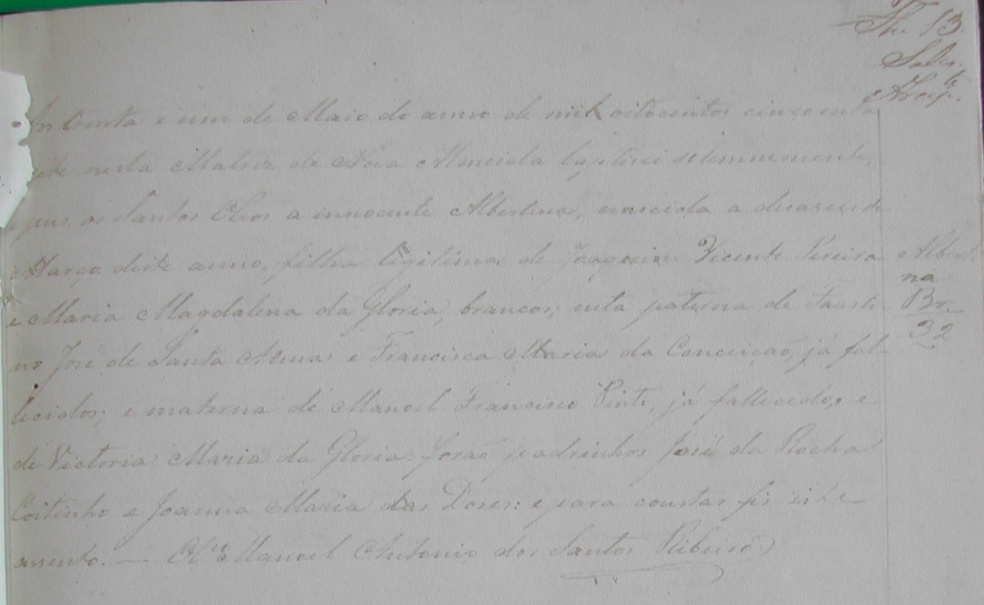 Fl. 13
trinta e um de Maio do anno de mil oitocentos cincoenta
nesta Matriz de baptisei solemnemente,
e pus os Santos Oleos a innocente Albertina, nascida a dezaseis de
Março deste anno, filha legitima de Joaquim Vicente Pereira
e Maria Magdalena da Gloria, brancos; neta paterna de Fausti-
no José de Santa Anna e Francisca Maria da Conceição, já fal-
lecidos; e materna de Manoel Francisco Pinto, já fallecido, e
de Victoria Maria da Gloria: forão padrinhos José da Rocha
Coitinho e Joanna Maria das Dores: e para constar fis este
assento. — O Vig.ro Manoel Antonio dos Santos Ribeiro
Alberti
na
Br.
32